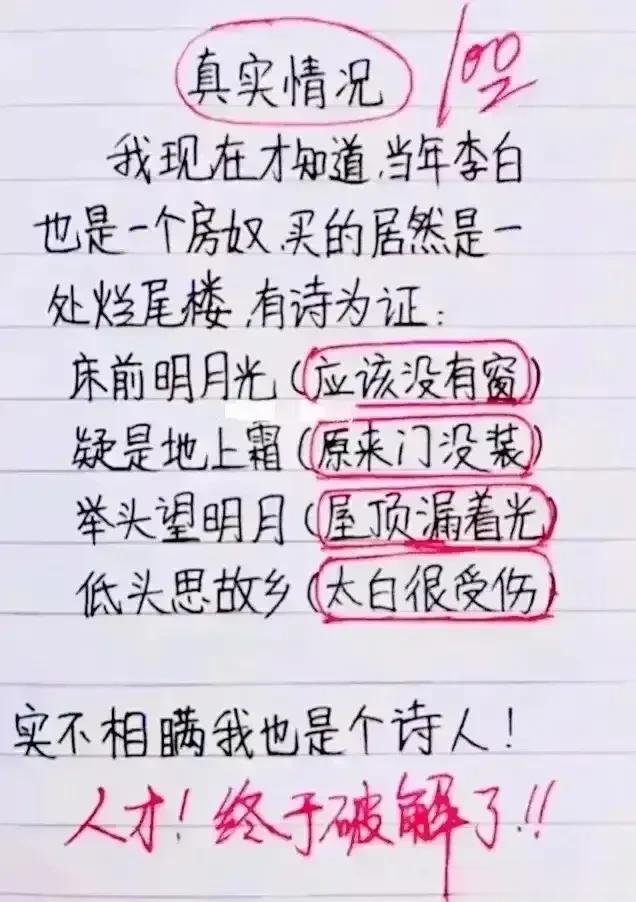 真实情况
100
我现在才知道,当年李白
也是一个房奴,买的居然是一
处烂尾楼,有诗为证:
床前明月光(应该没有窗)
疑是地上霜(原来门没装)
举头望明月(屋顶漏着光)
低头思故乡(太白很受伤)
实不相瞒我也是个诗人!
人才!终于破解了!!